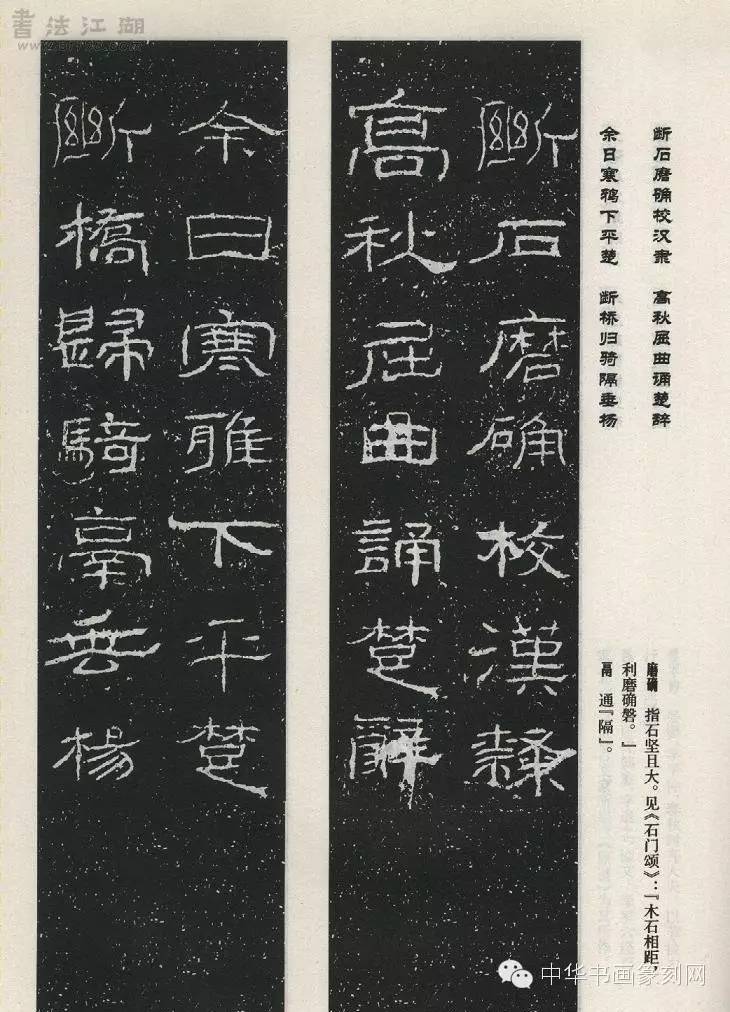 書法江湖
断石磨确校汉隶 高秋屈曲诵楚辞
余日寒鸦下平楚 断桥归骑隔垂杨
斷石磨确校漢隸
高秋屈曲誦楚辭
余日寒雅下平楚
斷橋歸騎鬲垂楊
磨确 指石坚且大。见《石门颂》：『木石相距，
利磨确磐。』
鬲 通『隔』。
中华书画篆刻网